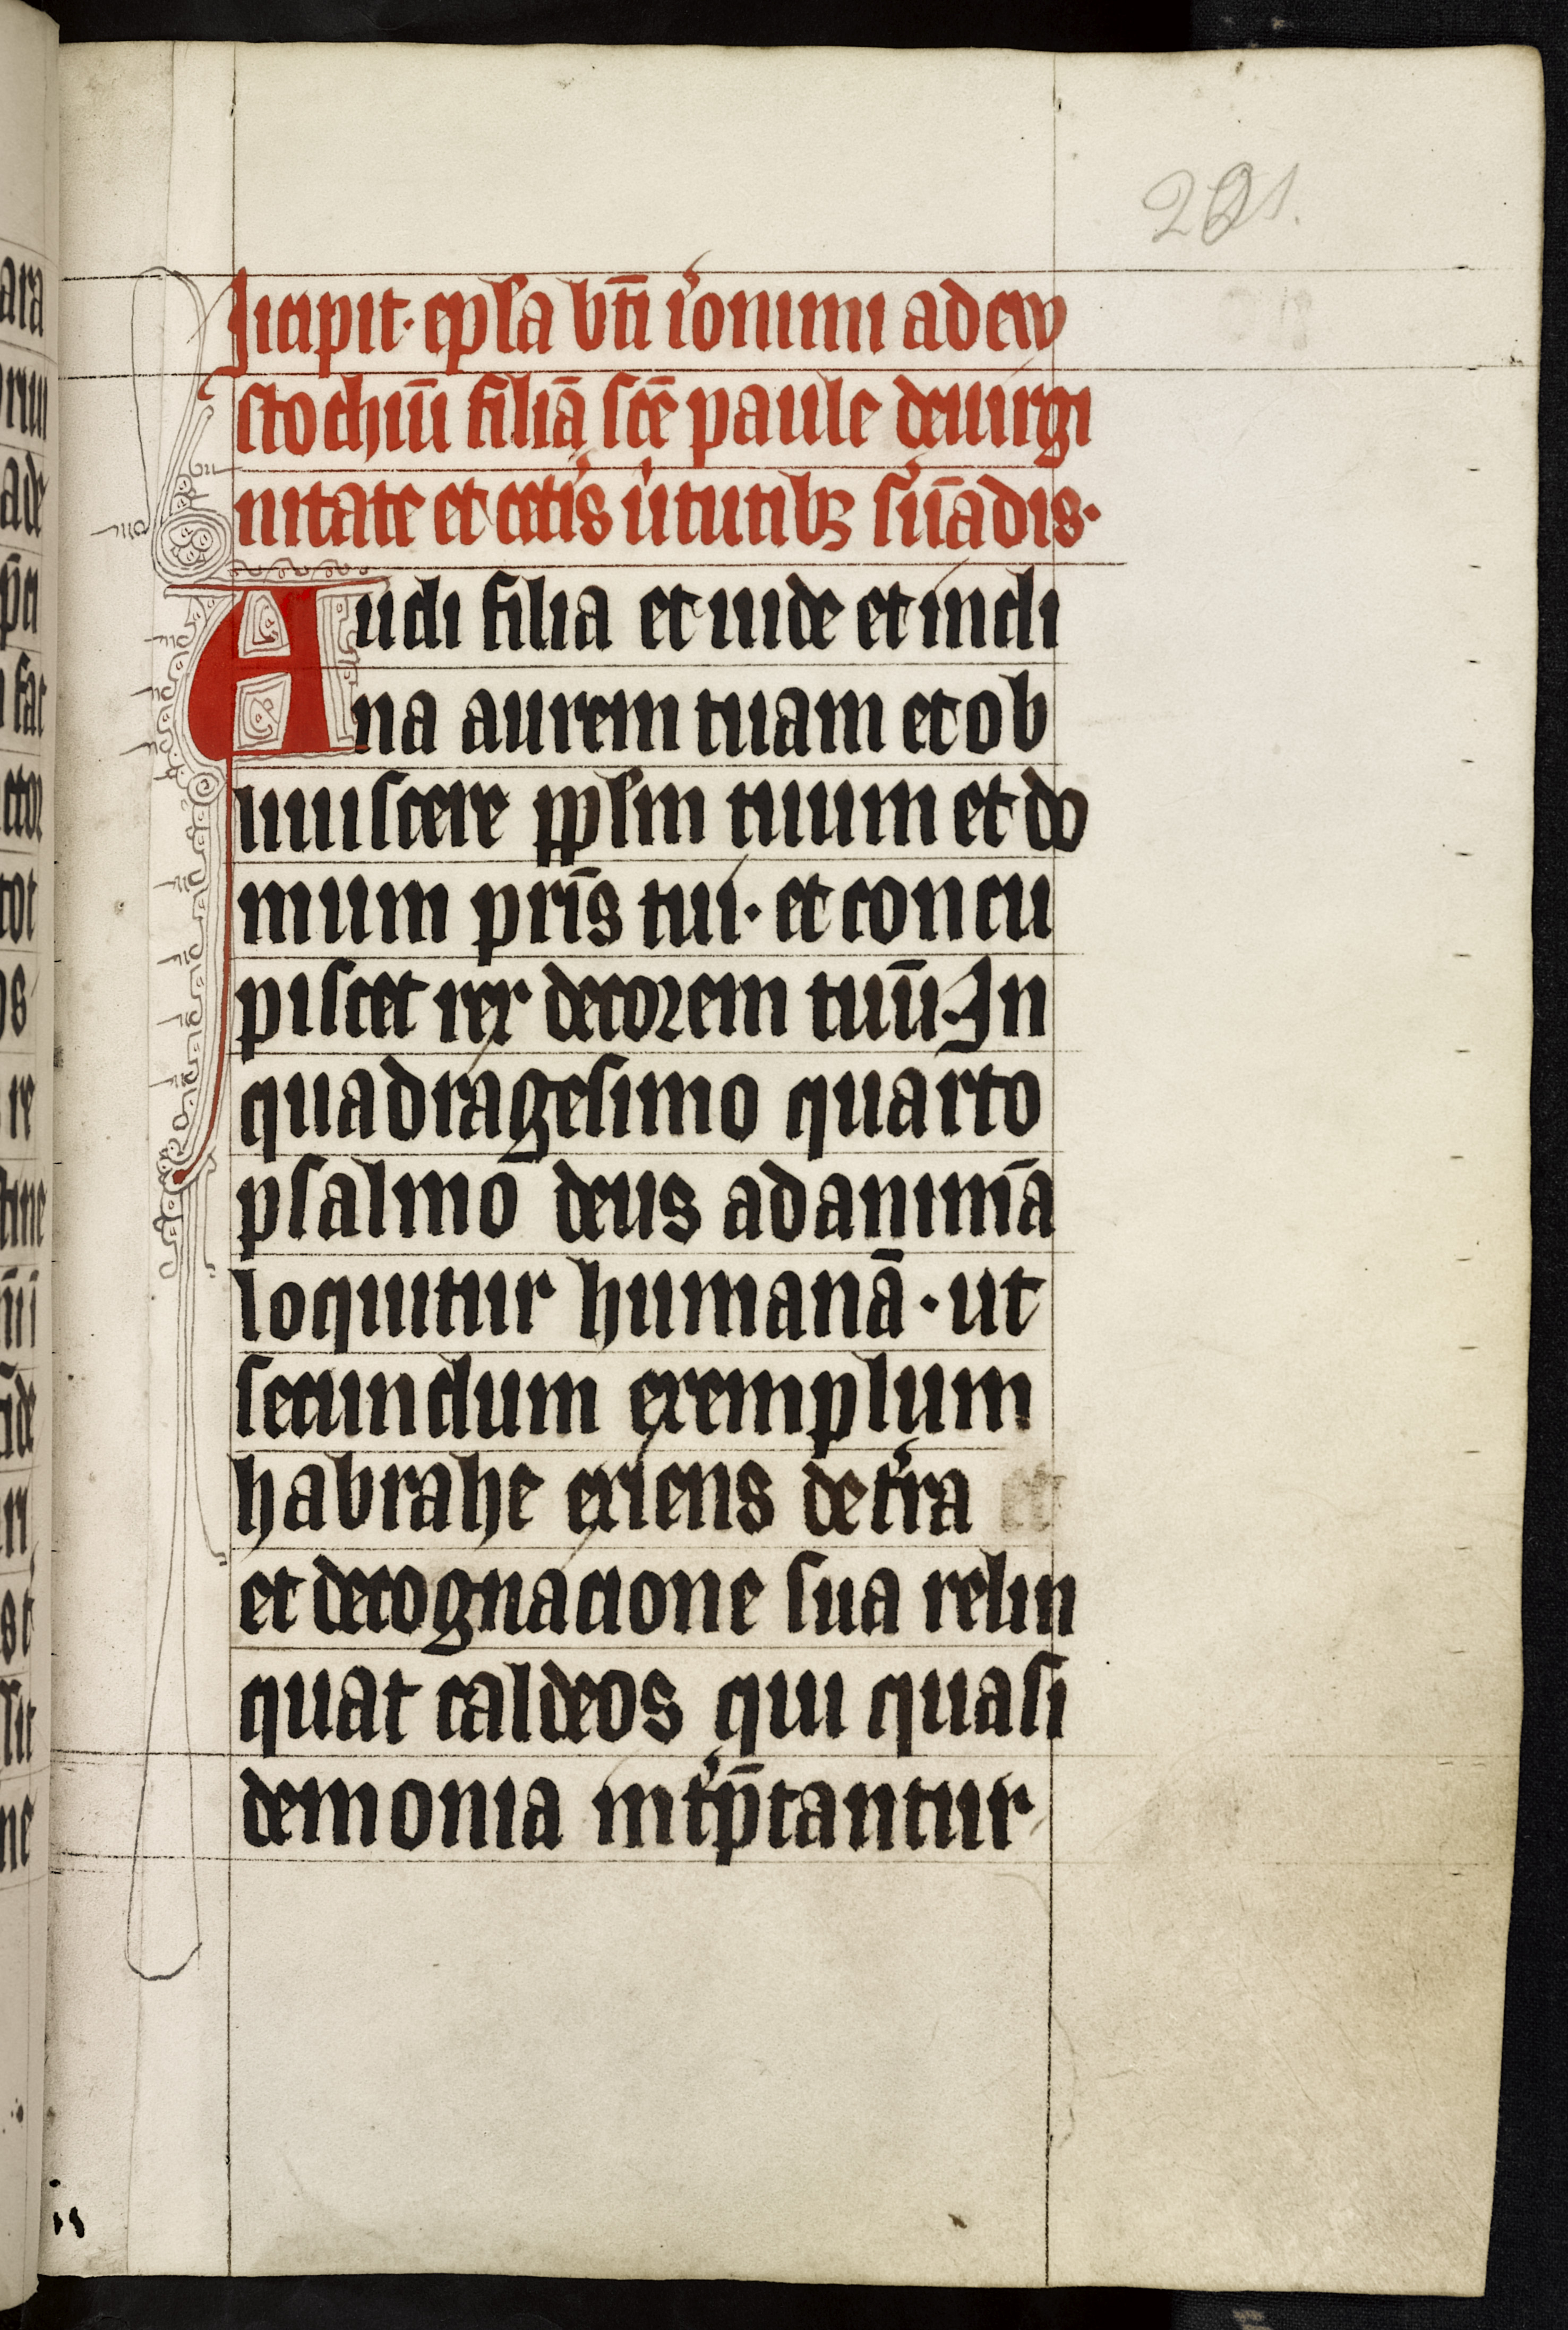 201.
Jncipit· epła bti̅ iʼonimi ad ew
stochiu̅ filia̅ sce̅ paule de uirgi
nitate et cetʼis uʼtutibꝫ sʼua̅dis·
Audi filia et uide et incli
na aurem tuam et ob
liuiscere pplm tuum et do
mum pri̅s tui· et concu
piscet rex decorem tuu̅· In
quadragesimo quarto
psalmo deus ad anima̅
loquitur humana̅ · ut
secundum exemplum
habrahe exiens de tʼra
et de cognacione sua relin
quat caldeos qui quasi
demonia intʼp̅tantur